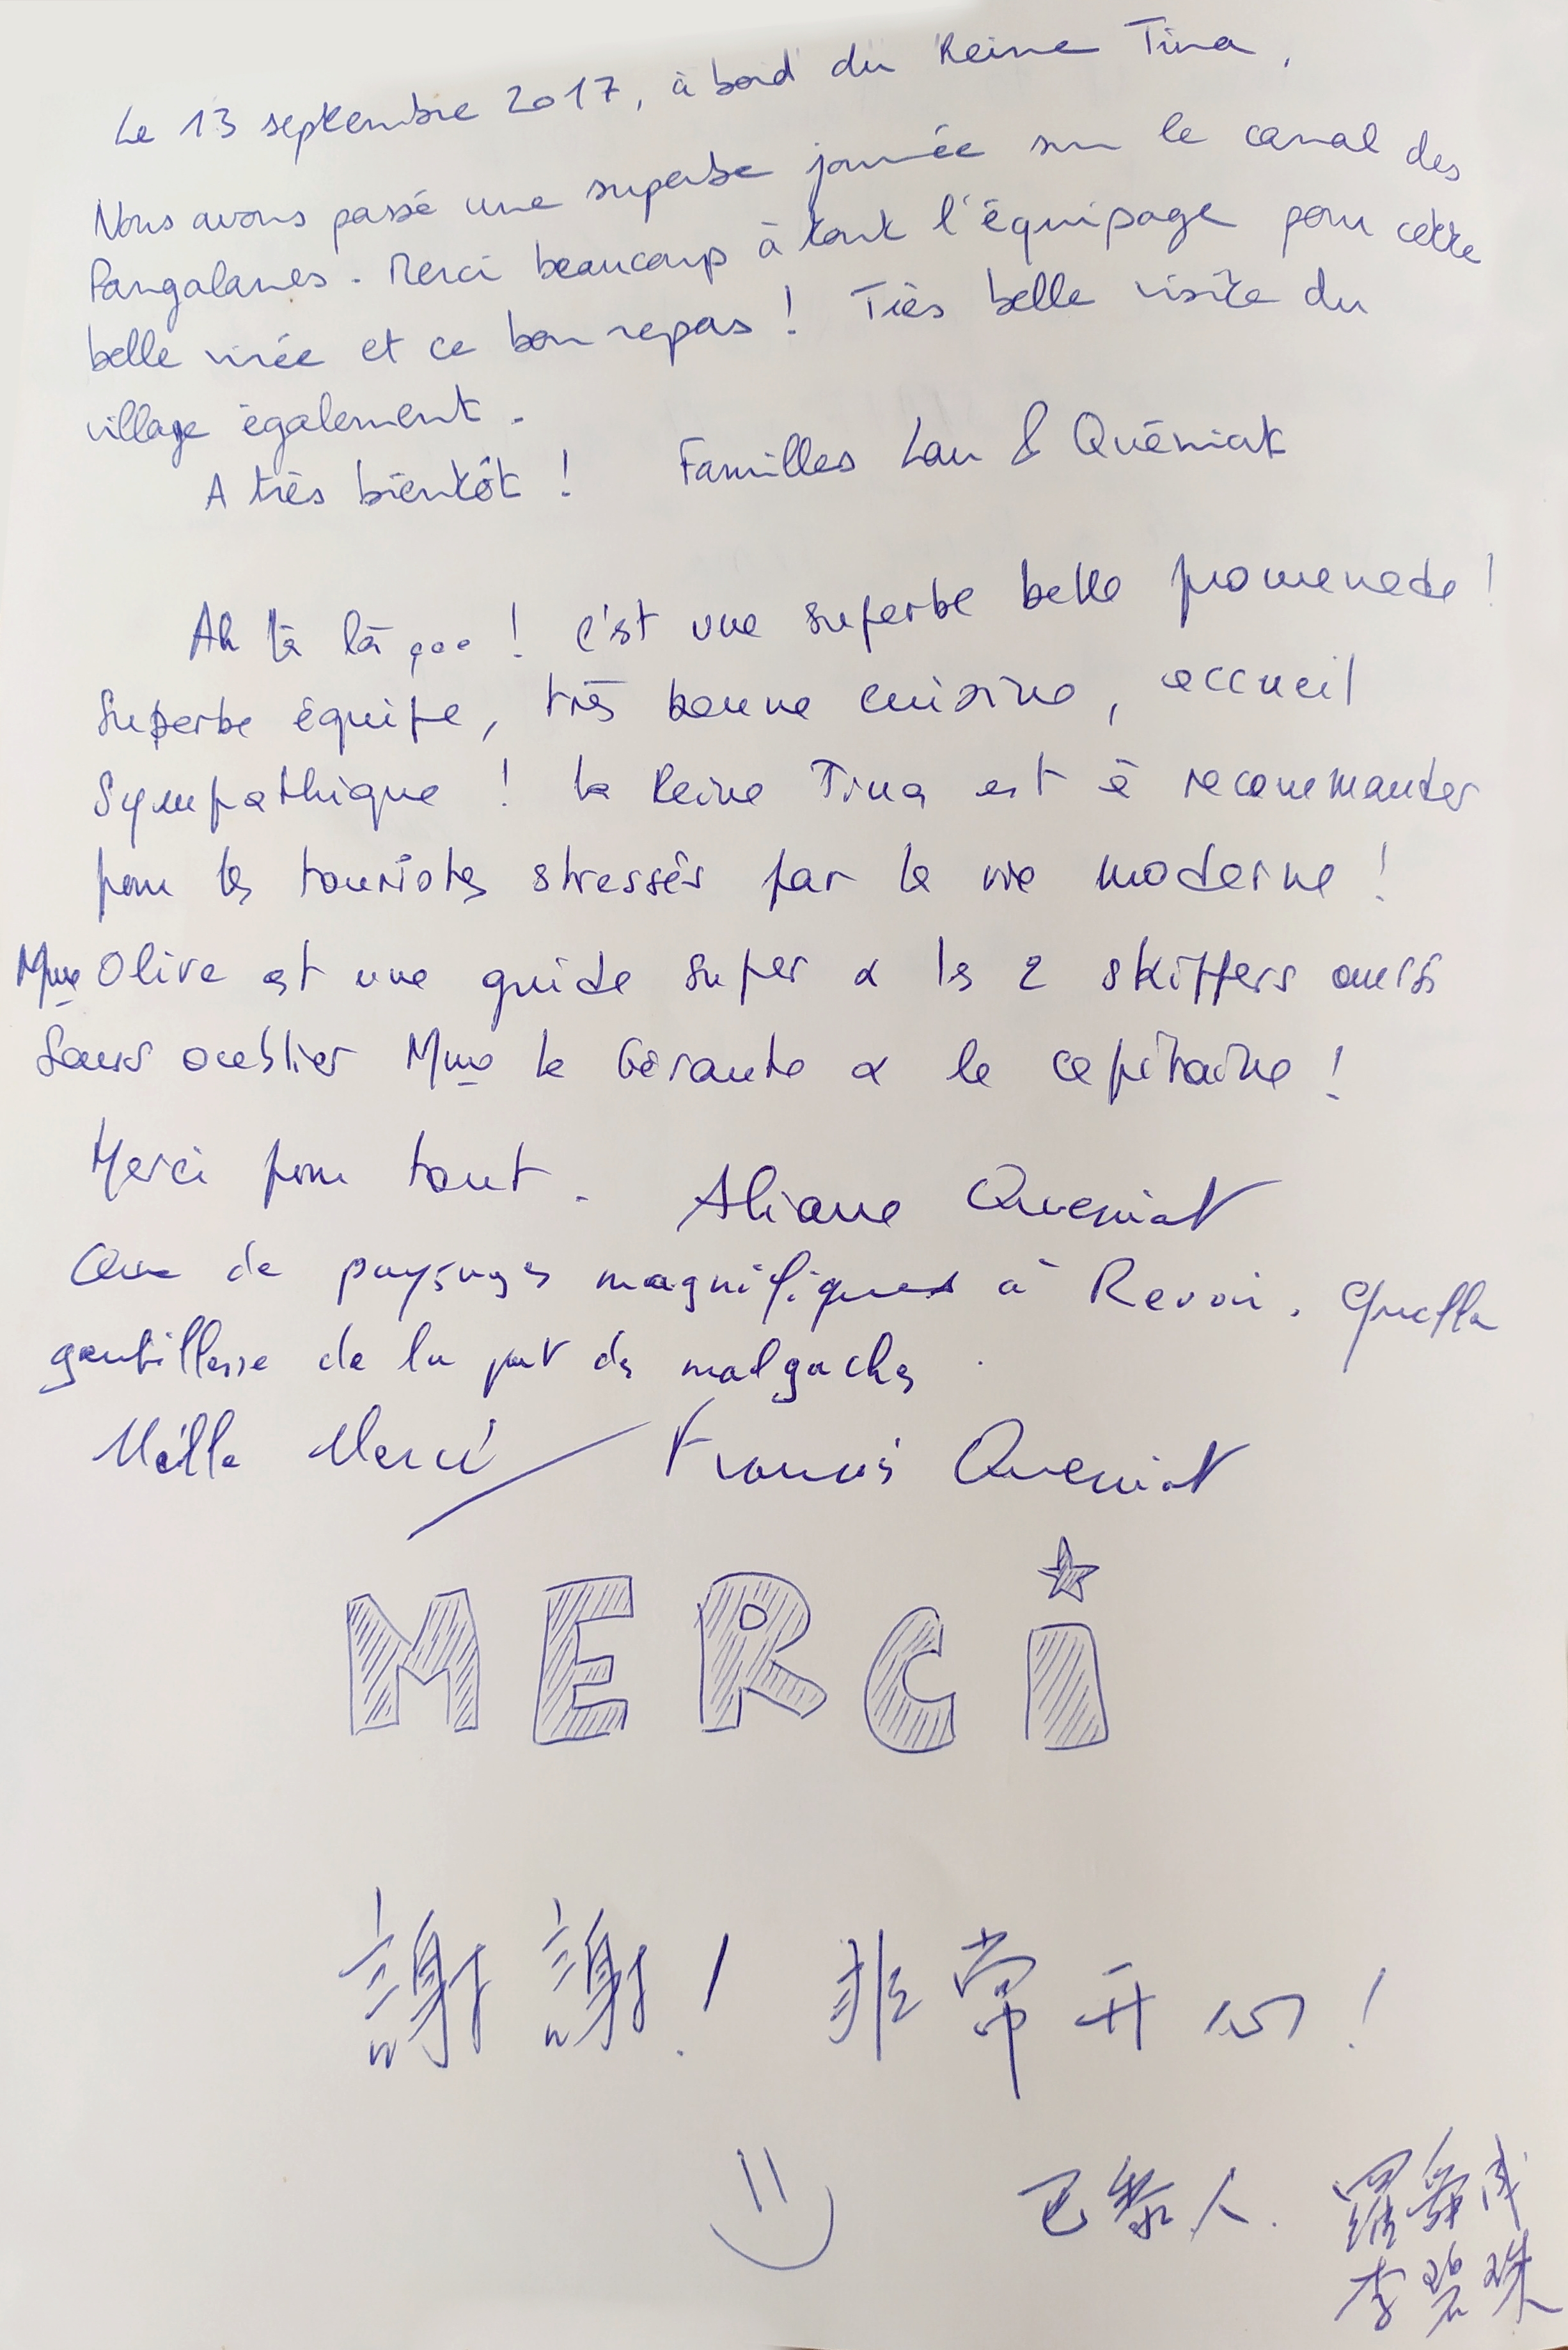 Le 13 septembre 2017, à bord du Reine Tina,
Nous avons passé une superbe journée sur le canal des
Pangalanes. Merci beaucoup à tout l'équipage pour cette
belle virée et ce bon repas ! Très belle visite du
village également.
A très bientôt ! Familles Lau & Quéniat
Ah là là ... ! C'est une superbe belle promenade !
Superbe équipe, très bonne cuisine, accueil
Sympathique ! la Reine Tina est à recommander
pour les touristes stressés par la vie moderne !
Mme Olive est une guide super & les 2 skippers aussi
Sans oublier Mme la Gérante & le capitaine !
Merci pour tout. Aliane Queniat
Que de paysages magnifiques à Revoir. Quelle
gentillesse de la part des malgaches.
Mille Merci Francis Queniat
MERCi
謝謝! 非常开心!
巴黎人.
李碧珠